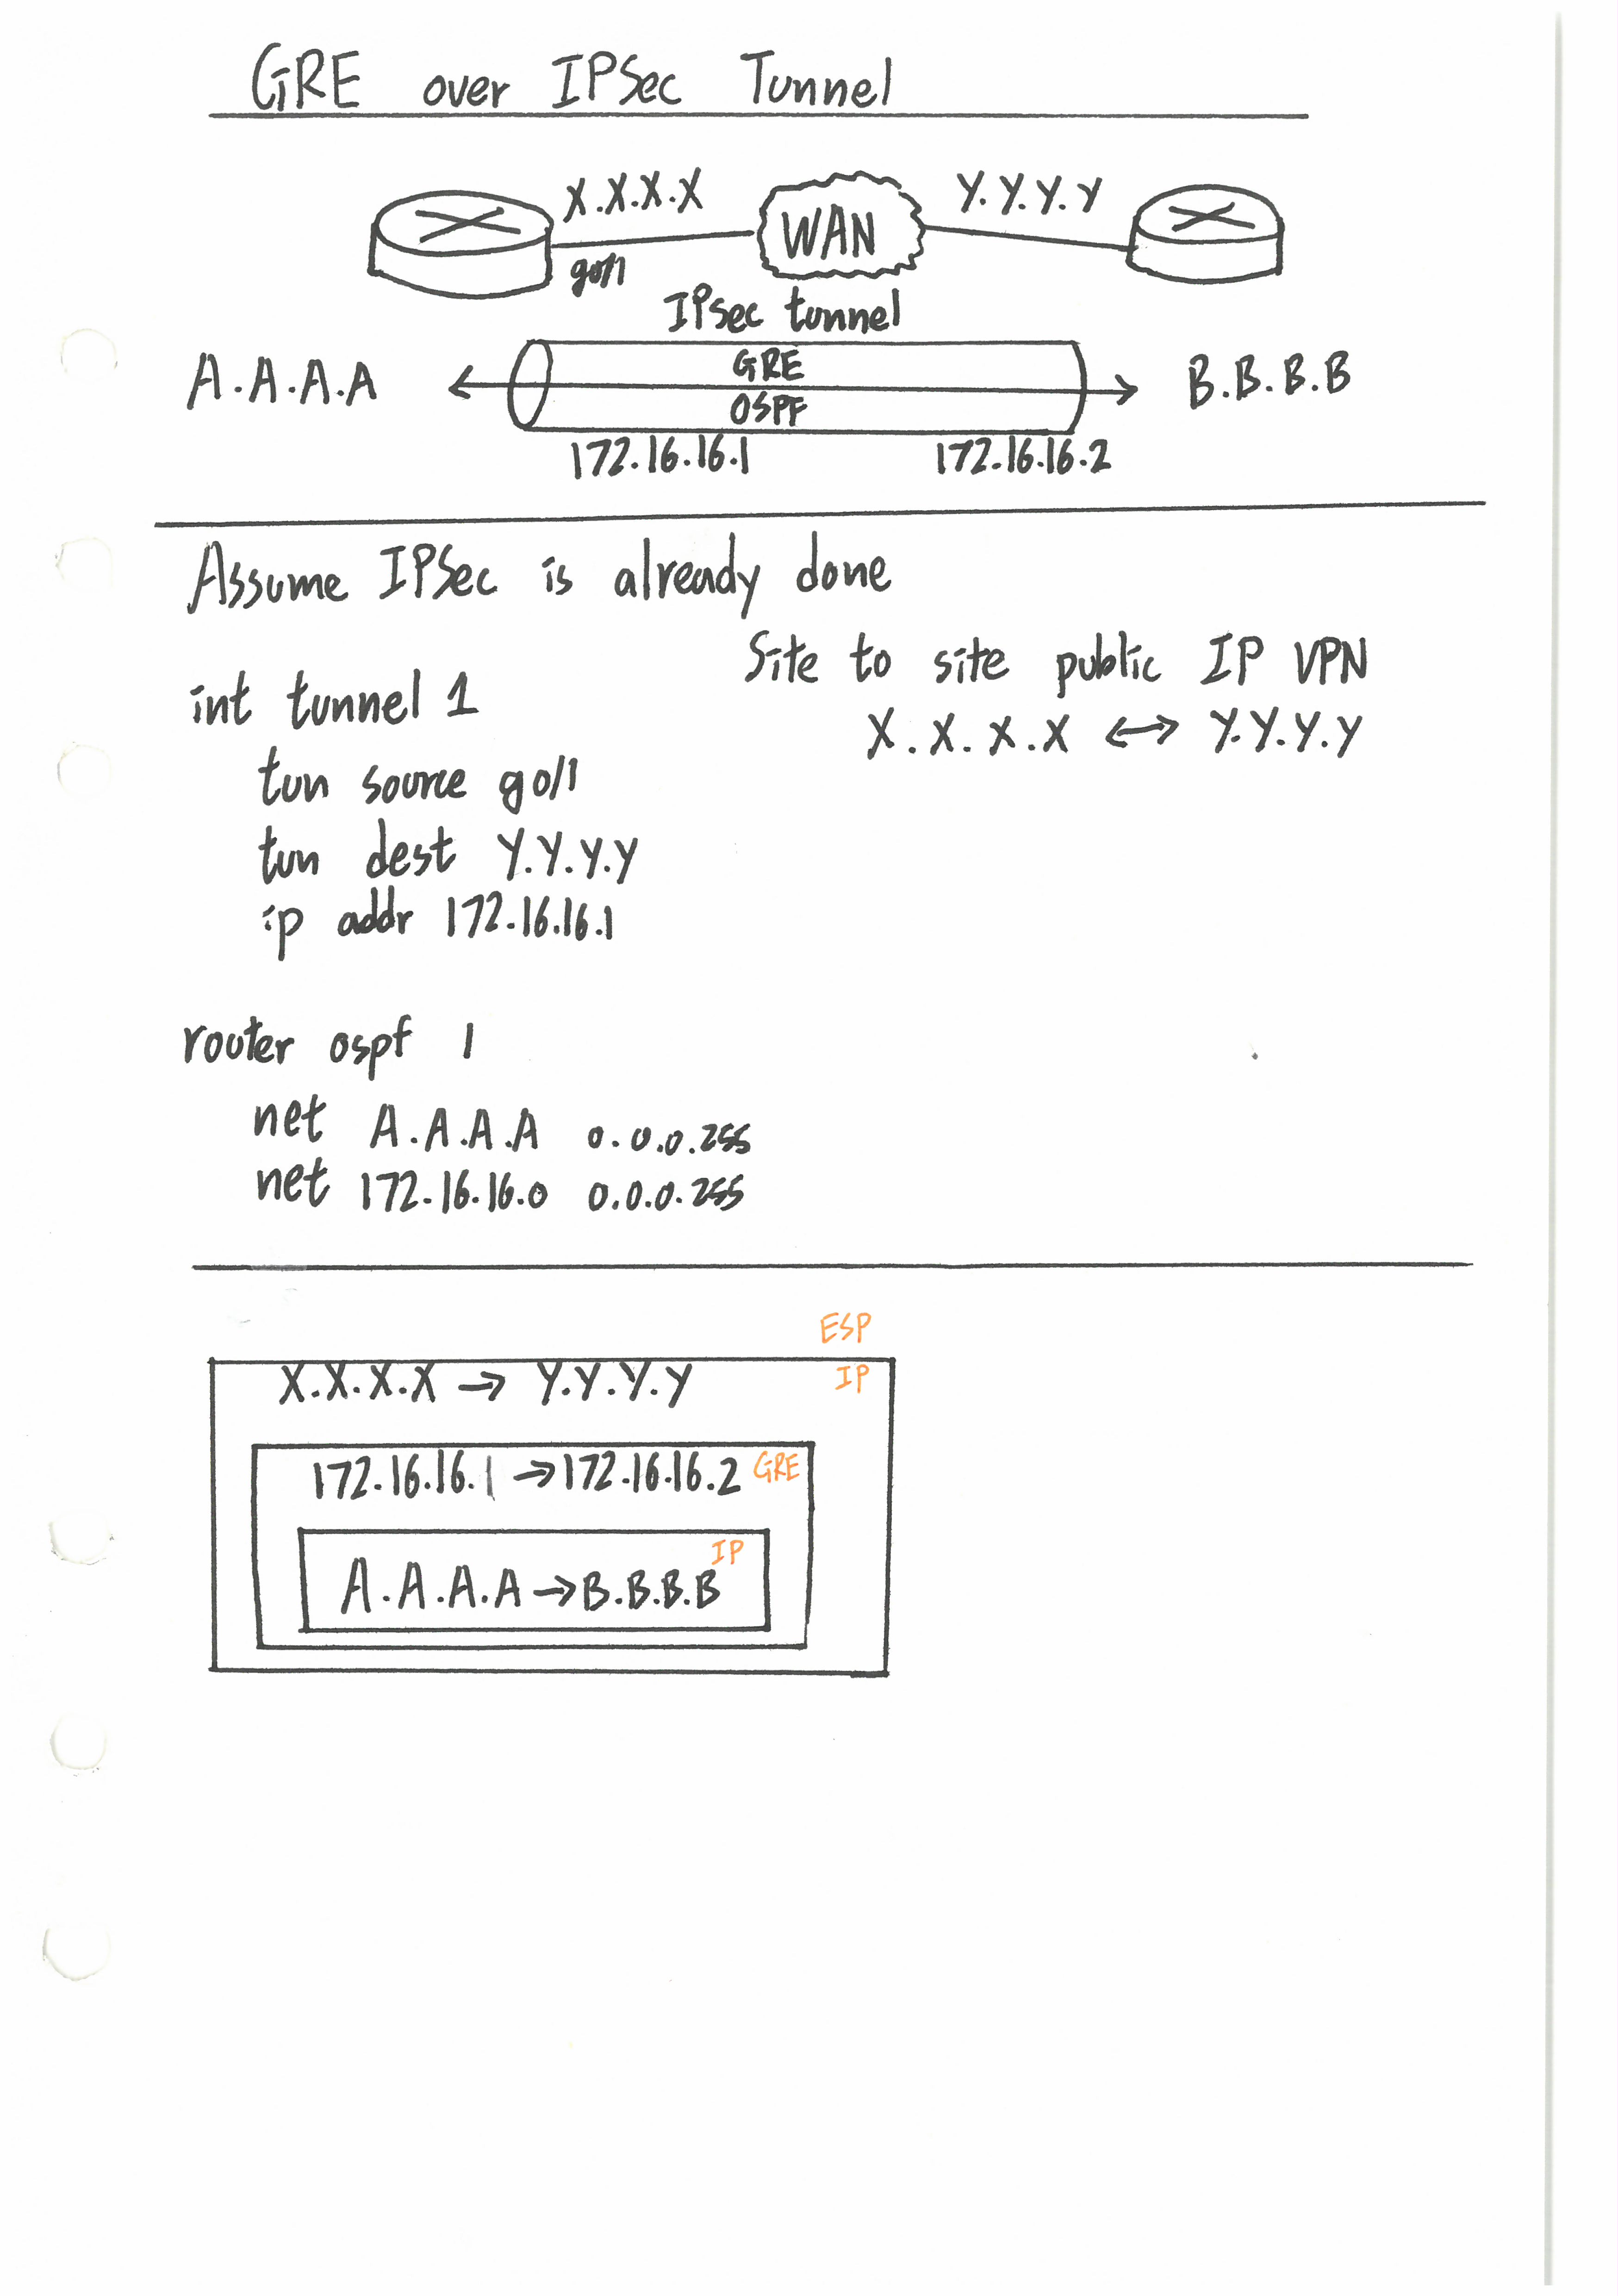 GRE over IPSec Tunnel
X.X.X.X
Y.Y.Y.Y
WAN
g0/1
IPsec tunnel
GRE
A.A.A.A
B.B.B.B
OSPF
172.16.16.1
172.16.16.2
Assume IPSec is already done
Site to site public IP VPN
X.X.X.X ↔ Y.Y.Y.Y
int tunnel 1
tun source g0/1
tun dest Y.Y.Y.Y
ip addr 172.16.16.1
router ospf 1
net A.A.A.A 0.0.0.255
net 172.16.16.0 0.0.0.255
ESP
X.X.X.X → Y.Y.Y.Y IP
172.16.16.1 → 172.16.16.2 GRE
IP
A.A.A.A → B.B.B.B